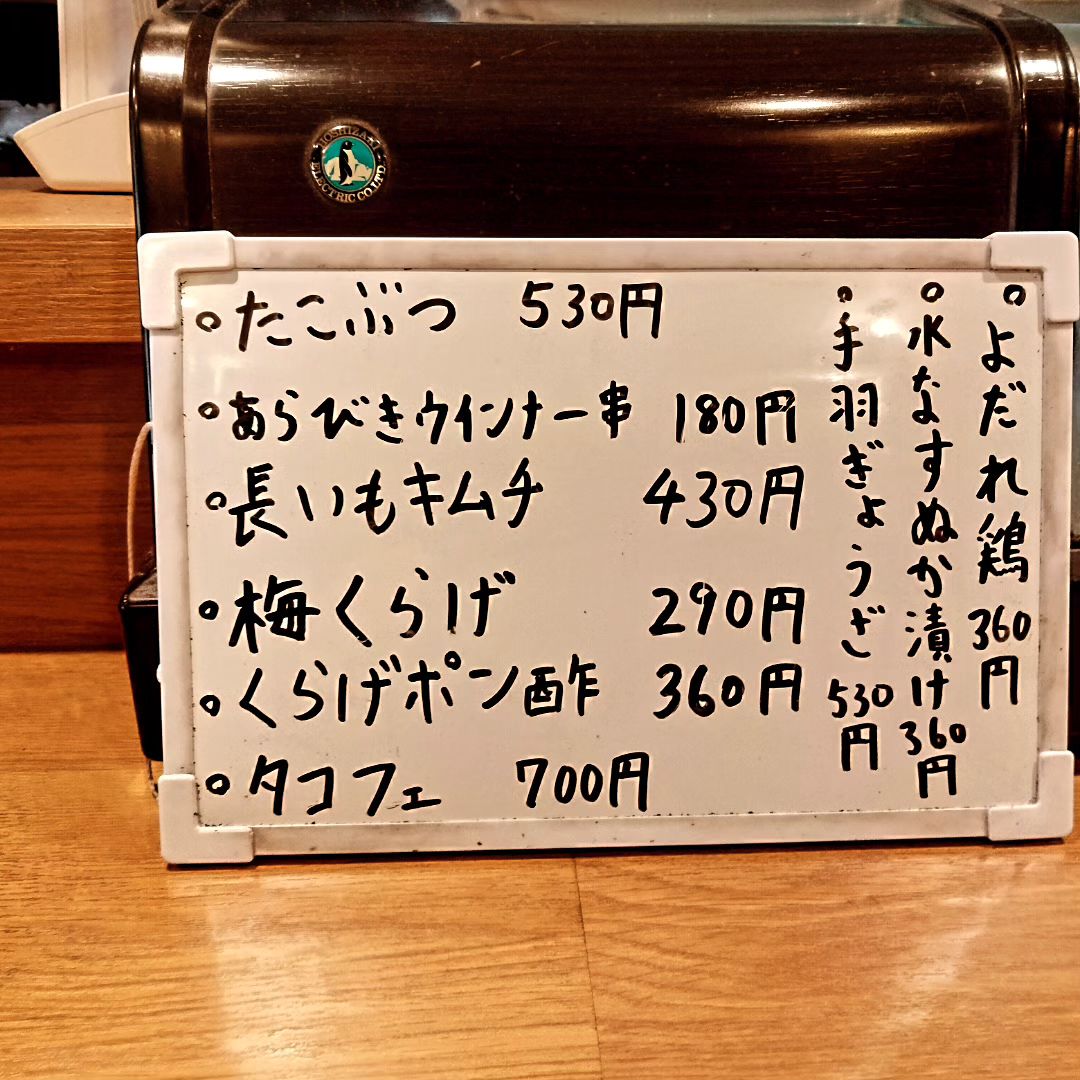 HOSHIZAKI ELECTRIC CO.LTD
。たこぶつ 530円
。あらびきウインナー串 180円
。長いもキムチ 430円
。梅くらげ 290円
。くらげポン酢 360円
。タコフェ 700円
。よだれ鶏 360円
。水なすぬか漬け 360円
。手羽ぎょうざ 530円